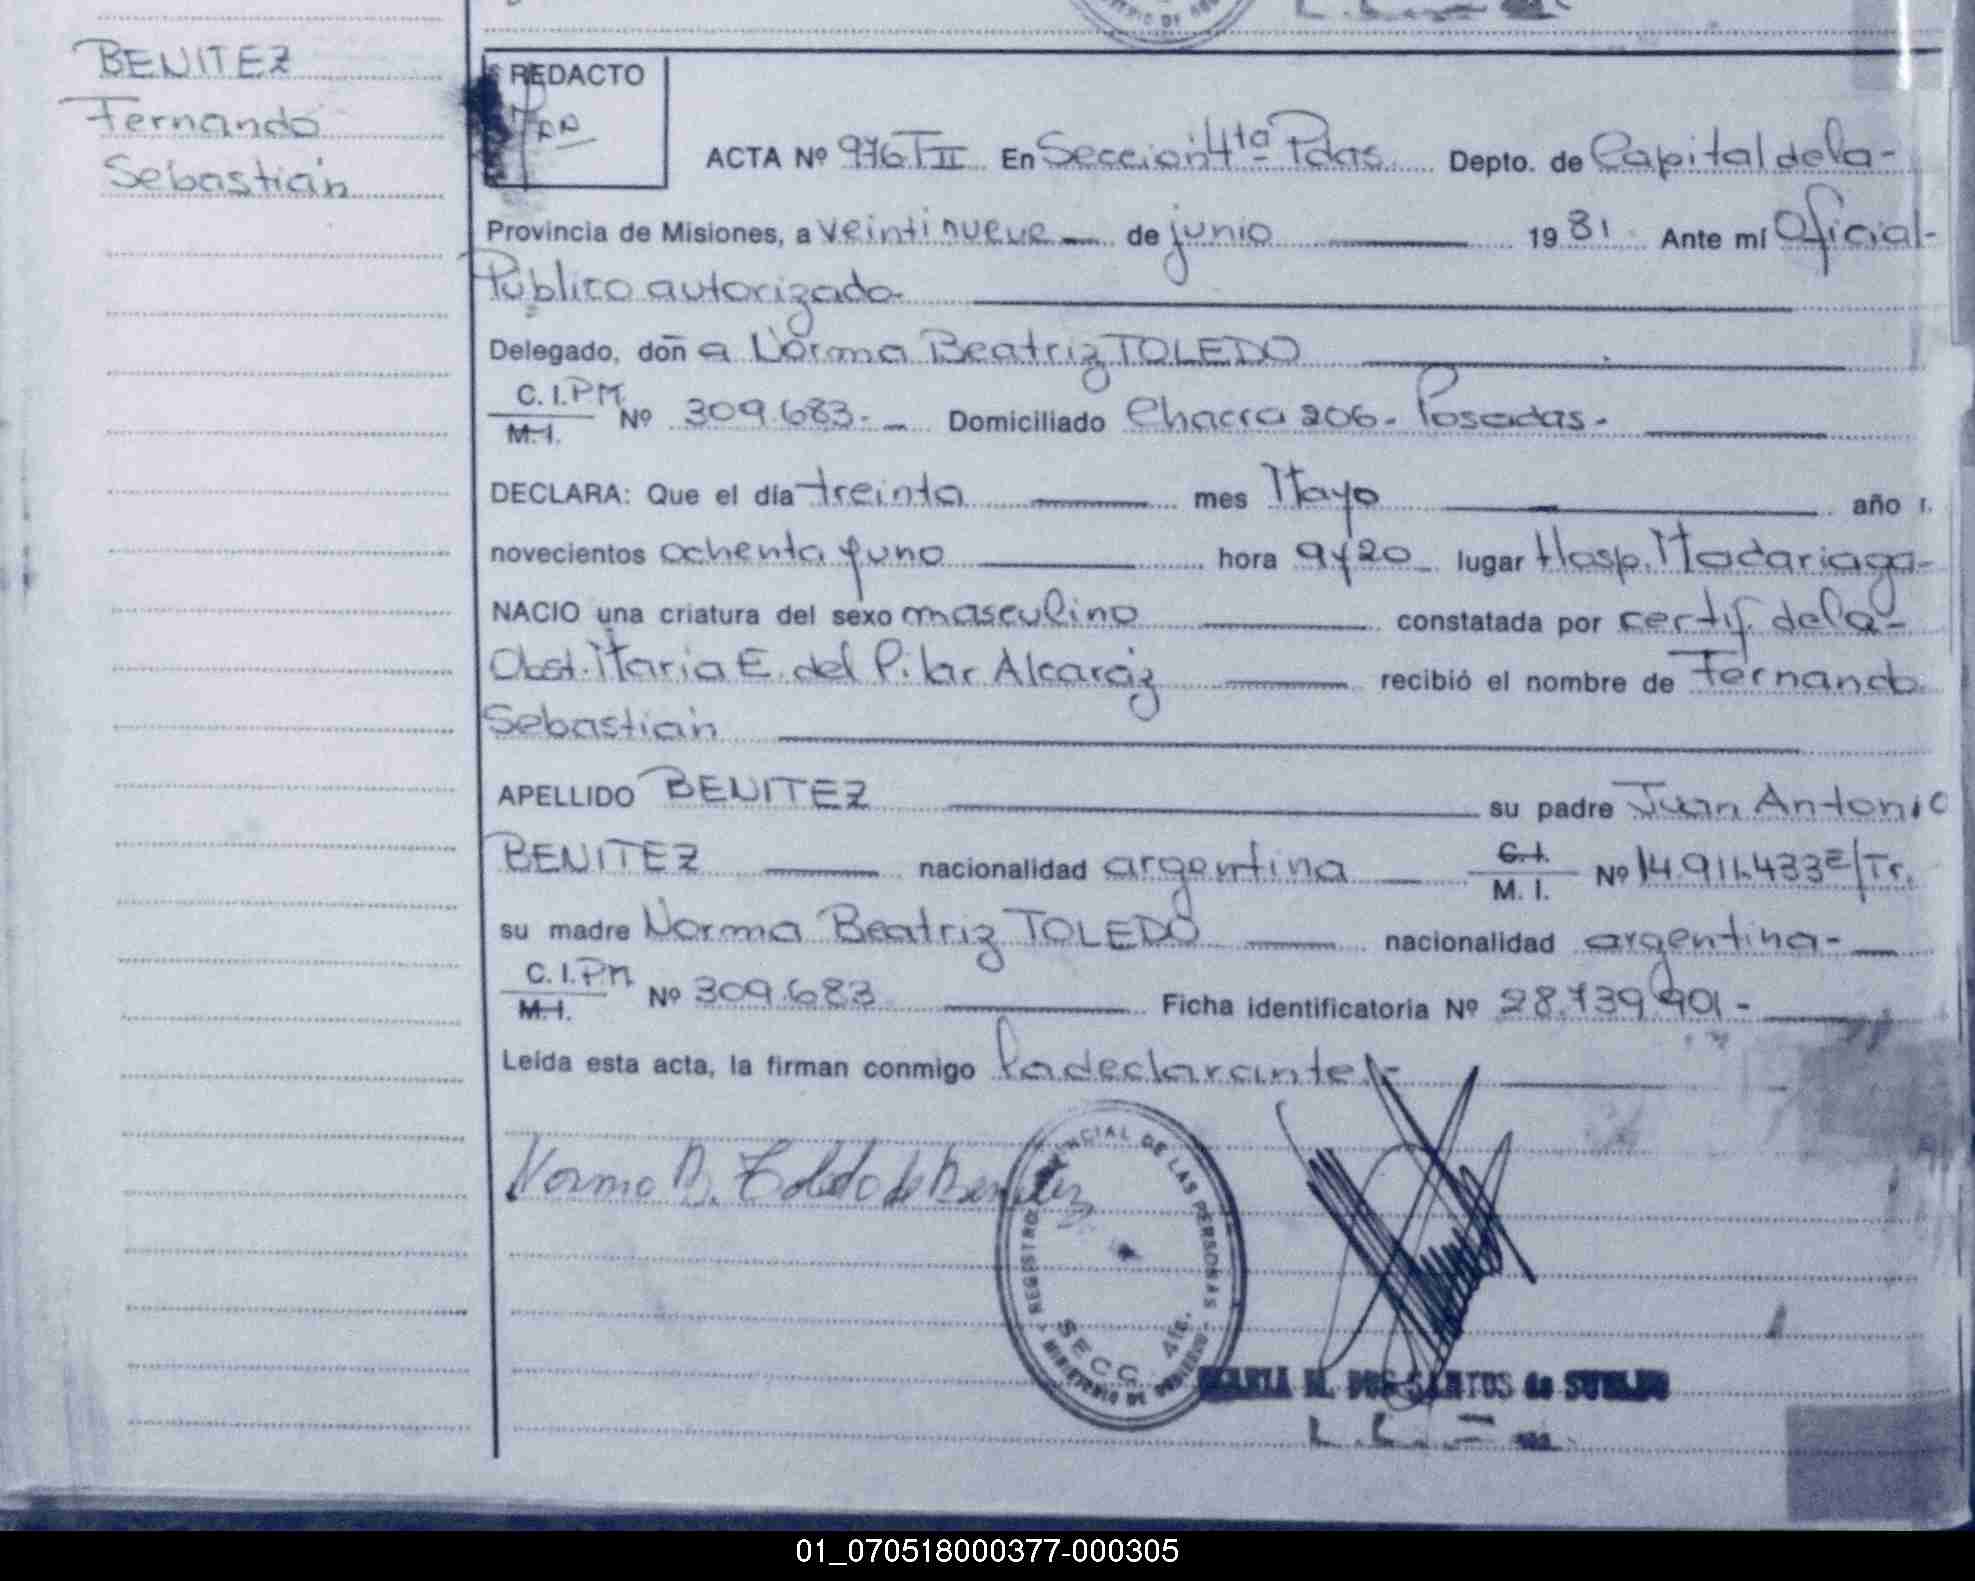 BENITEZ
Fernando
Sebastián
REDACTO
ACTA Nº 976 T II En Sección 4ta Pdas. Depto. de Capital de la-
Provincia de Misiones, a veintinueve de junio 1981 Ante mí Oficial-
Público autorizado-
Delegado, doña Norma Beatriz TOLEDO
C. I. PM.
M. I. Nº 309.683.- Domiciliado Chacra 206- Posadas-
DECLARA: Que el día treinta mes Mayo año
novecientos ochenta y uno hora 9 y 20 lugar Hosp. Madariaga-
NACIO una criatura del sexo masculino constatada por certif. de la-
Obst. Maria E. del Pilar Alcaráz recibió el nombre de Fernando
Sebastián
APELLIDO BENITEZ su padre Juan Antonio
BENITEZ nacionalidad argentina C. I.
M. I. Nº 14.911.433 E/Tr.
su madre Norma Beatriz TOLEDO nacionalidad argentina-
C. I. PM
M. I. Nº 309.683 Ficha identificatoria Nº 28.739.901-
Leída esta acta, la firman conmigo la declarante-
Norma B. Toledo de Benitez
REGISTRO PROVINCIAL DE LAS PERSONAS
SECC. 4ta.
MINISTERIO DE GOBIERNO
MARIA M. DOS SANTOS de
01_070518000377-000305